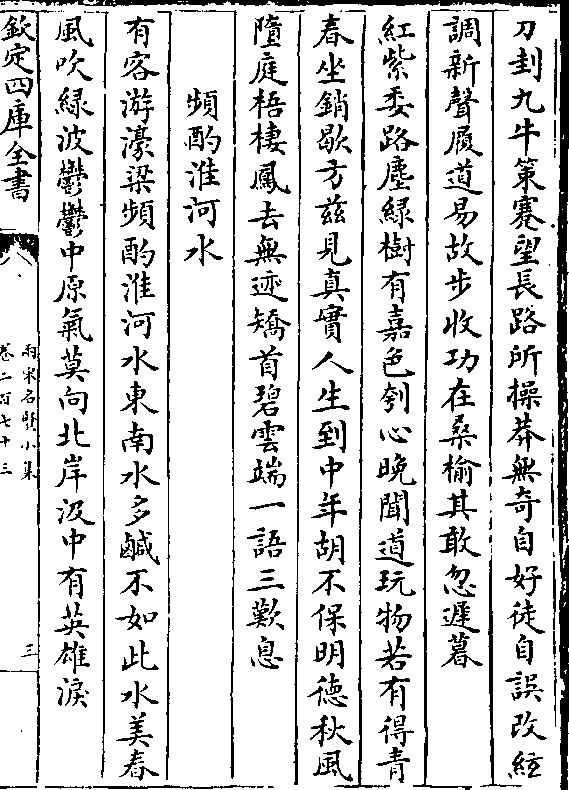 刀刲九牛策蹇望長路所操莽無奇自好徒自誤改絃
調新聲履道易故步收功在桑榆其敢忽遲暮
紅紫委路塵綠樹有嘉色刳心晚聞道玩物若有得青
春坐銷歇方茲見真實人生到中年胡不保明徳秋風
墮庭梧棲鳳去無迹矯首碧雲端一語三歎息
頻酌淮河水
有客游濠梁頻酌淮河水東南水多鹹不如此水美春
風吹緑波鬱鬱中原氣莫向北岸汲中有英雄淚
欽定四庫全書
兩宋名賢小集
卷二百七十三
三